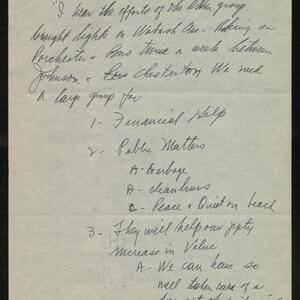 "I hear the efforts of the other group
brought lights on Wabash Ave - Parking on
Porchester & Bus twice a week between
Johnson & Chesterton. We need
a large group for
1 - Financial Help
2 - Public Matters
A - Garbage
A - cleanliness
C - Peace & Quiet on beach
3 - They will help our ppty
increase in Value
A - We can have so
well taken care of a